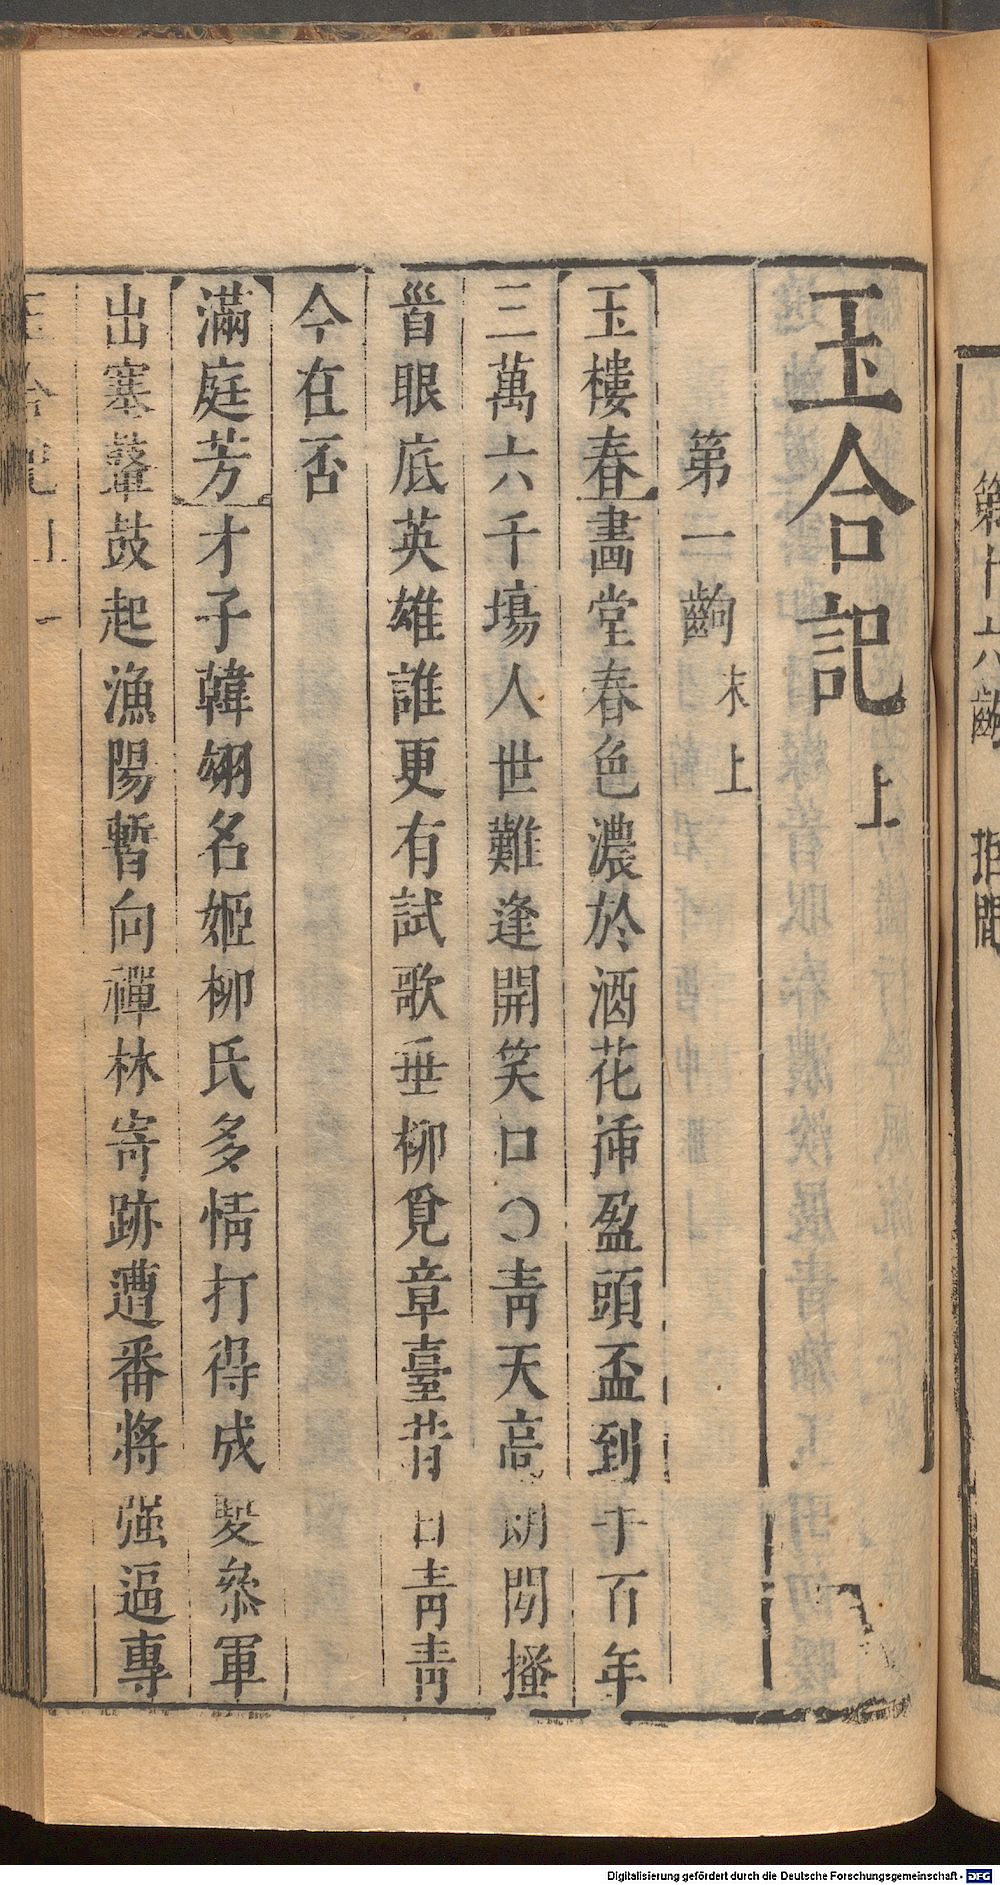 第十六齣
玉合記 上
第一齣 末上
玉樓春 畫堂春色濃於酒花揷盈頭盃到手百年
三萬六千塲人世難逢開笑口○靑天高朗閒搔
首眼底英雄誰更有試歌垂柳覓章臺昔日靑靑
今在否
滿庭芳 才子韓翃名姬柳氏多情打得成雙叅軍
出塞鼙鼓起漁陽暫向禪林寄跡遭番將强逼專
玉合記 上 一
Digitalisierung gefördert durch die Deutsche Forschungsgemeinschaft - DFG